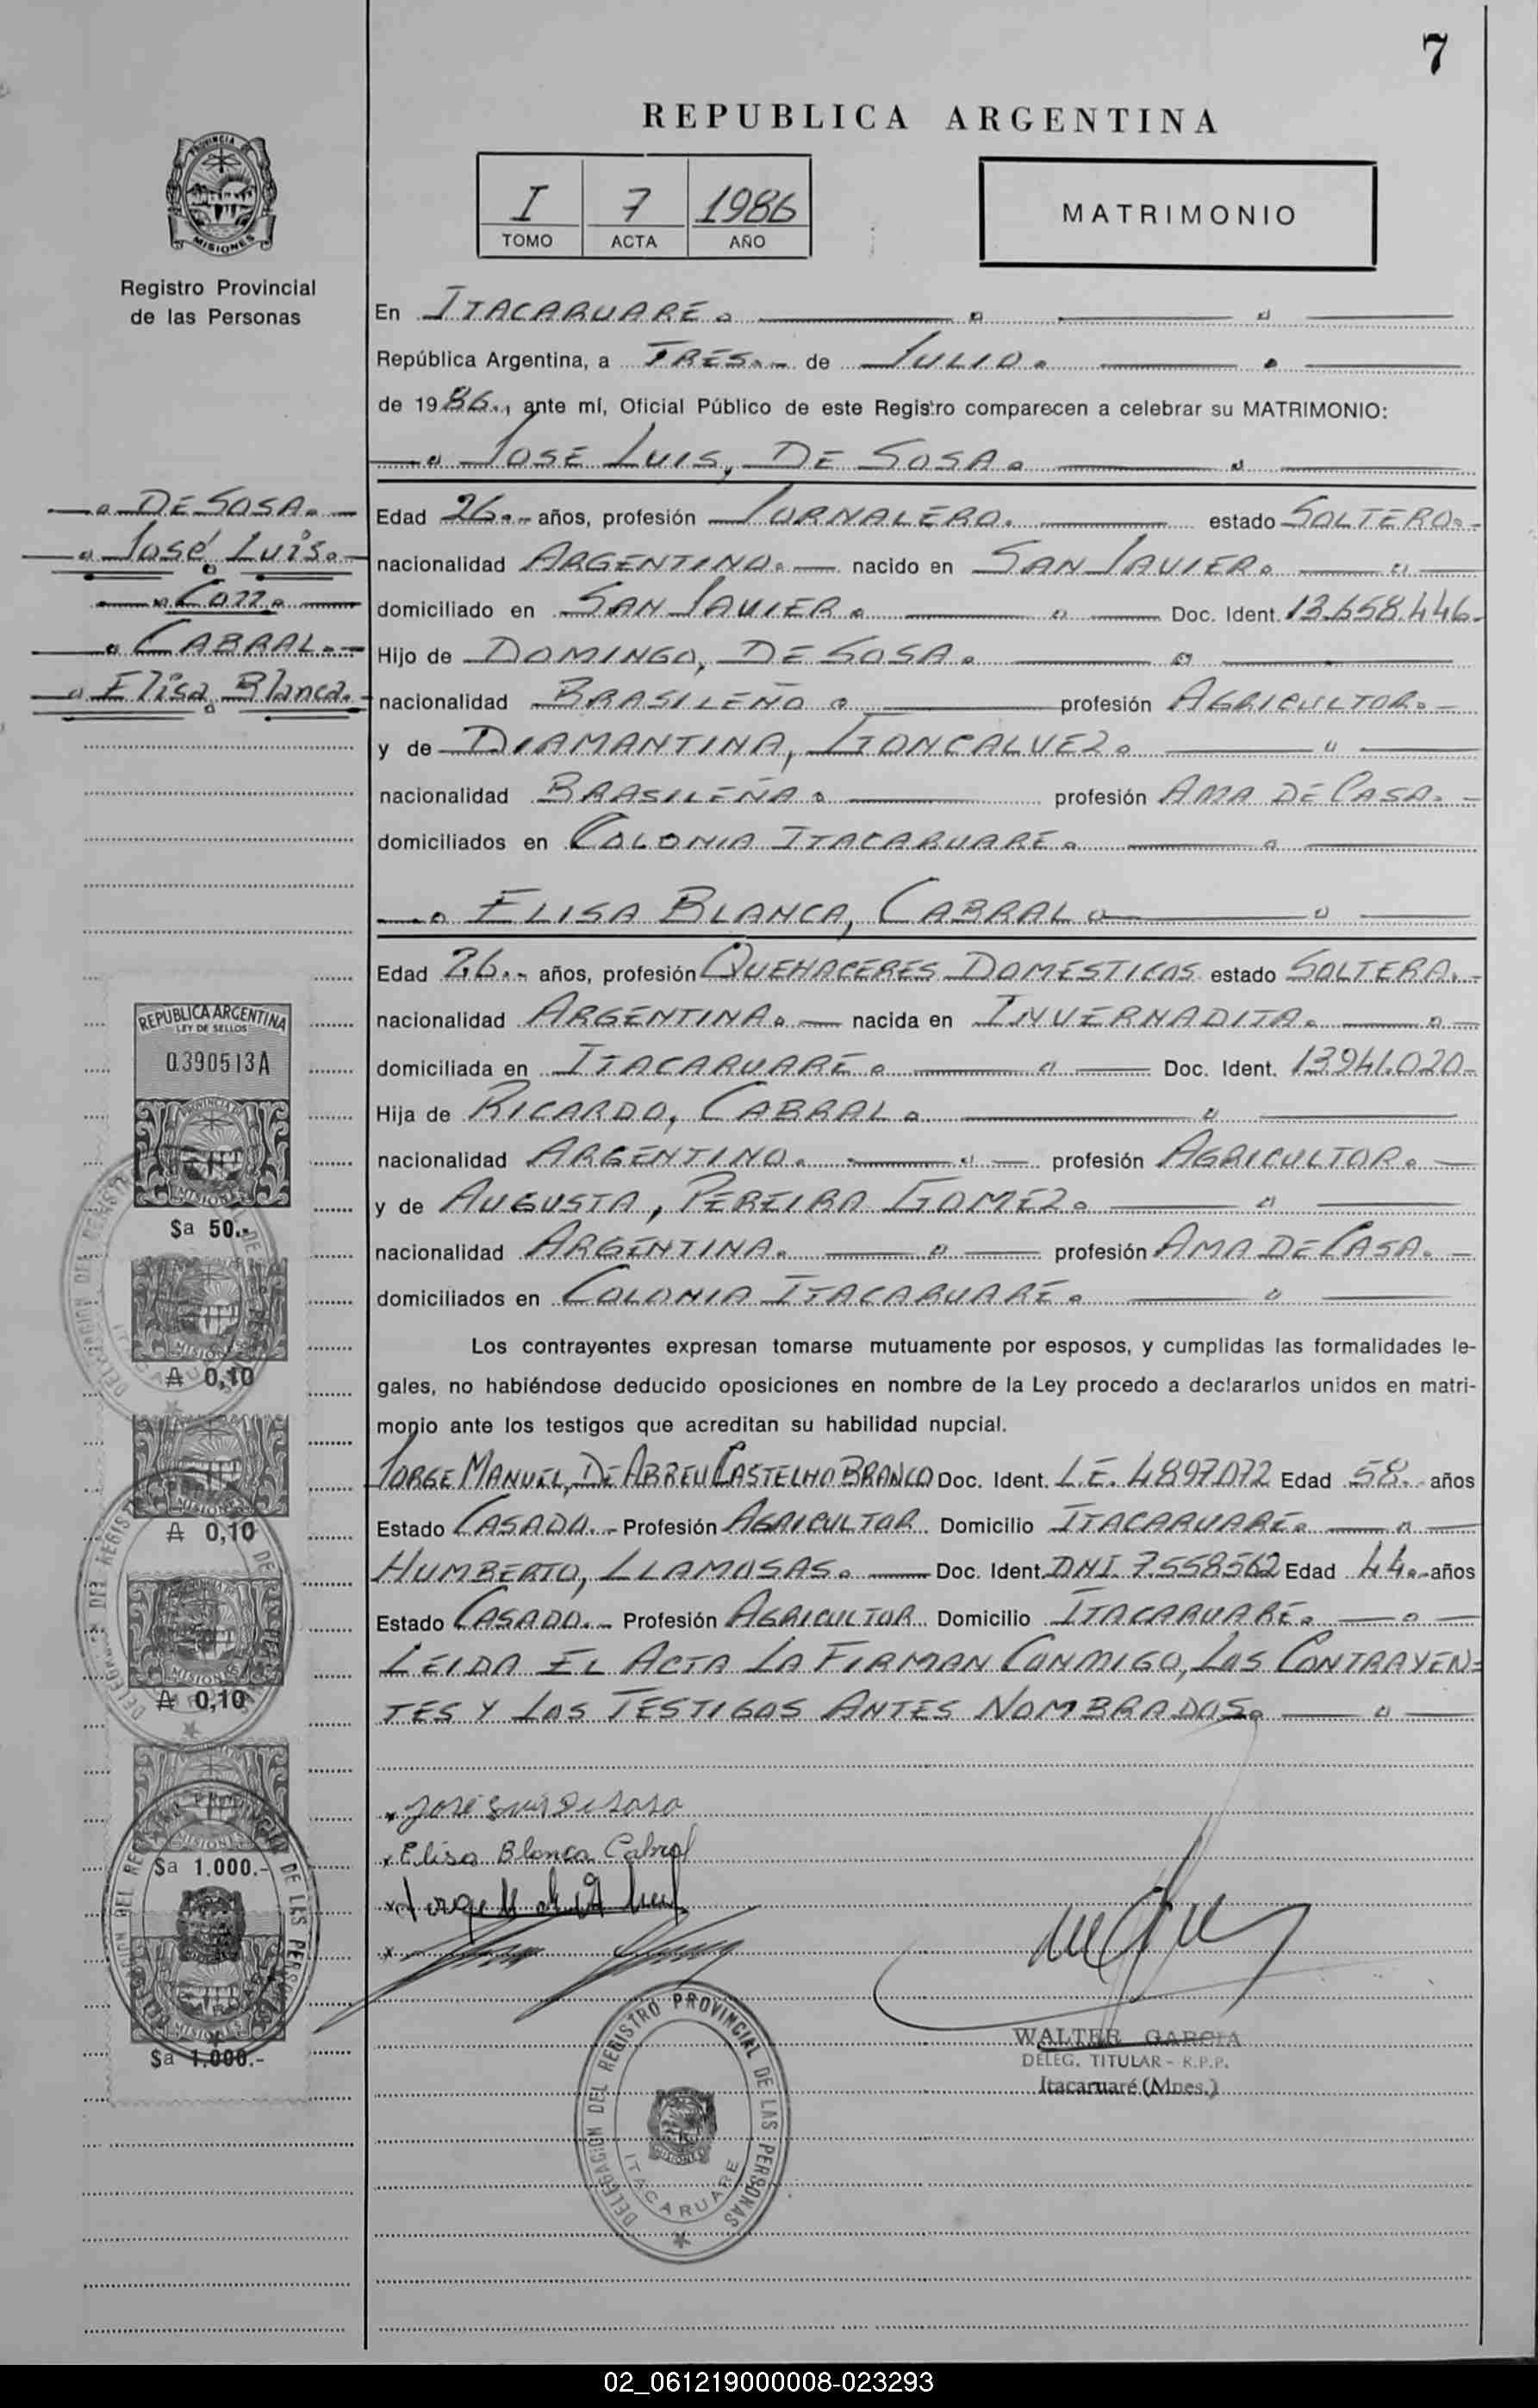 7
REPUBLICA ARGENTINA
PROVINCIA DE
MISIONES
Registro Provincial
de las Personas
I 7 1986
TOMO ACTA AÑO
MATRIMONIO
En ITACARUARE.
República Argentina, a TRES.- de JULIO.
de 1986., ante mí, Oficial Público de este Registro comparecen a celebrar su MATRIMONIO:
JOSE LUIS, DE SOSA.
DE SOSA.
José Luis.
Con.
CABRAL.-
Elisa Blanca.
Edad 26.- años, profesión JORNALERO. estado SOLTERO.-
nacionalidad ARGENTINO. nacido en SAN JAVIER.
domiciliado en SAN JAVIER. Doc. Ident. 13.658.446.
Hijo de DOMINGO, DE SOSA.
nacionalidad BRASILEÑO. profesión AGRICULTOR.-
y de DIAMANTINA, GONCALVEZ.
nacionalidad BRASILEÑA. profesión AMA DE CASA.-
domiciliados en COLONIA ITACARUARE.
ELISA BLANCA, CABRAL
Edad 26.- años, profesión QUEHACERES DOMESTICOS estado SOLTERA.-
nacionalidad ARGENTINA. nacida en INVERNADITA.
domiciliada en ITACARUARE. Doc. Ident. 13941.020-
Hija de RICARDO, CABRAL.
nacionalidad ARGENTINO. profesión AGRICULTOR.
y de AUGUSTA, PEREIRA GOMEZ.
nacionalidad ARGENTINA. profesión AMA DE CASA.-
domiciliados en COLONIA ITACARUARE.
Los contrayentes expresan tomarse mutuamente por esposos, y cumplidas las formalidades le-
gales, no habiéndose deducido oposiciones en nombre de la Ley procedo a declararlos unidos en matri-
monio ante los testigos que acreditan su habilidad nupcial.
JORGE MANUEL, DE ABREU CASTELHO BRANCO Doc. Ident. L.E. 4897.072 Edad 58.- años
Estado CASADO.- Profesión AGRICULTOR Domicilio ITACARUARE.
HUMBERTO, LLAMOSAS. Doc. Ident. DNI. 7.558562 Edad 44.- años
Estado CASADO.- Profesión AGRICULTOR Domicilio ITACARUARE.
LEIDA EL ACTA LA FIRMAN CONMIGO, LOS CONTRAYEN-
TES Y LOS TESTIGOS ANTES NOMBRADOS.
x José Luis De Sosa
x Elisa Blanca Cabral
WALTER GARCIA
DELEG. TITULAR - R.P.P.
Itacaruaré (Mnes.)
DELEGACION DEL REGISTRO PROVINCIAL DE LAS PERSONAS
ITACARUARE
REPUBLICA ARGENTINA
LEY DE SELLOS
0390513A
MISIONES
$a 50.-
MISIONES
₳ 0,10
₳ 0,10
MISIONES
₳ 0,10
MISIONES
$a 1.000.-
MISIONES
$a 1.000.-
02_061219000008-023293